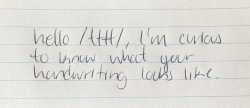 hello /tttt/, I'm curious
to know what your
handwriting looks like.